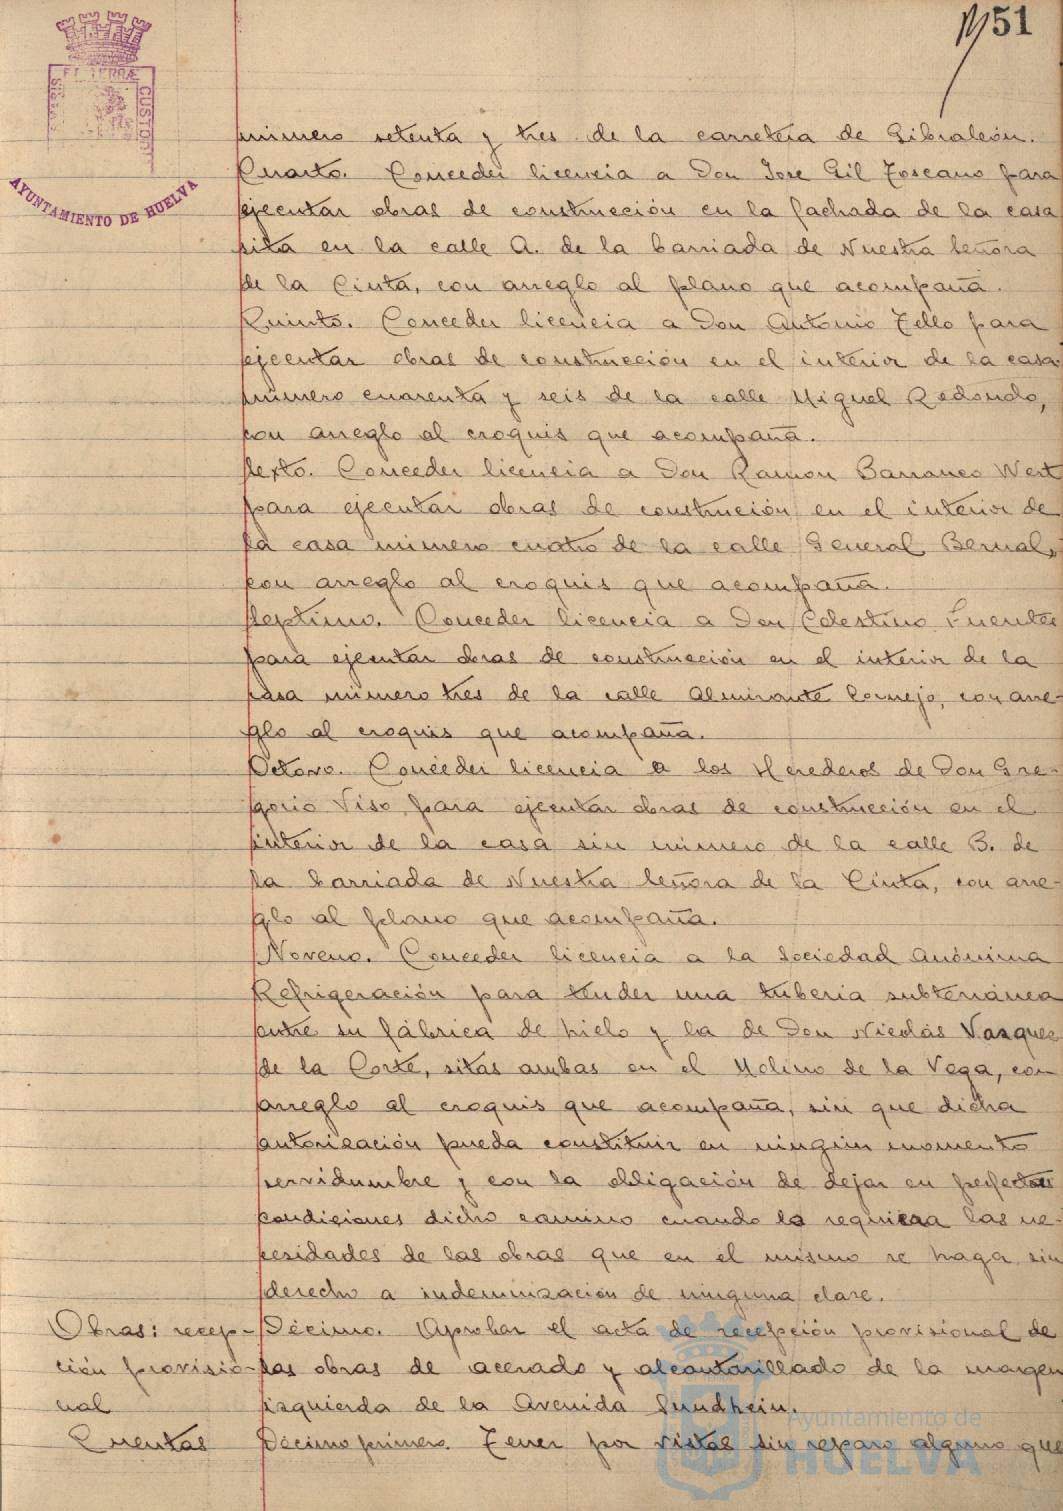 51
ET TERRÆ
CUSTODIA
AYUNTAMIENTO DE HUELVA
número setenta y tres de la carretera de Gibraleón.
Cuarto. Conceder licencia a Don Jose Gil Toscano para
ejecutar obras de construcción en la fachada de la casa
sita en la calle A. de la barriada de Nuestra Señora
de la Cinta, con arreglo al plano que acompaña.
Quinto. Conceder licencia a Don Antonio Tello para
ejecutar obras de construcción en el interior de la casa
número cuarenta y seis de la calle Miguel Redondo,
con arreglo al croquis que acompaña.
Sexto. Conceder licencia a Don Ramon Barranco Wert
para ejecutar obras de construción en el interior de
la casa número cuatro de la calle General Bernal,
con arreglo al croquis que acompaña.
Septimo. Conceder licencia a Don Celestino Fuentes
para ejecutar obras de construcción en el interior de la
casa número tres de la calle Almirante Cornejo, con arre-
glo al croquis que acompaña.
Octavo. Conceder licencia a los Herederos de Don Gre-
gorio Viso para ejecutar obras de construcción en el
interior de la casa sin número de la calle B. de
la barriada de Nuestra Señora de la Cinta, con arre-
glo al plano que acompaña.
Noveno. Conceder licencia a la Sociedad Anónima
Refrigeración para tender una tuberia subterránea
entre su fábrica de hielo y la de Don Nicolás Vazquez
de la Corte, sitas ambas en el Molino de la Vega, con
arreglo al croquis que acompaña, sin que dicha
autorización pueda constituir en ningún momento
servidumbre y con la obligación de dejar en perfectas
condiciones dicho camino cuando lo requiera las ne-
cesidades de las obras que en el mismo se haga sin
derecho a indemnización de ninguna clase.
Obras: recep- Décimo. Aprobar el acta de recepción provisional de
ción provisio- las obras de acerado y alcantarillado de la margen
nal izquierda de la Avenida Sundhein.
Cuentas Décimo primero. Tener por vistas sin reparo alguno que
Ayuntamiento de
HUELVA